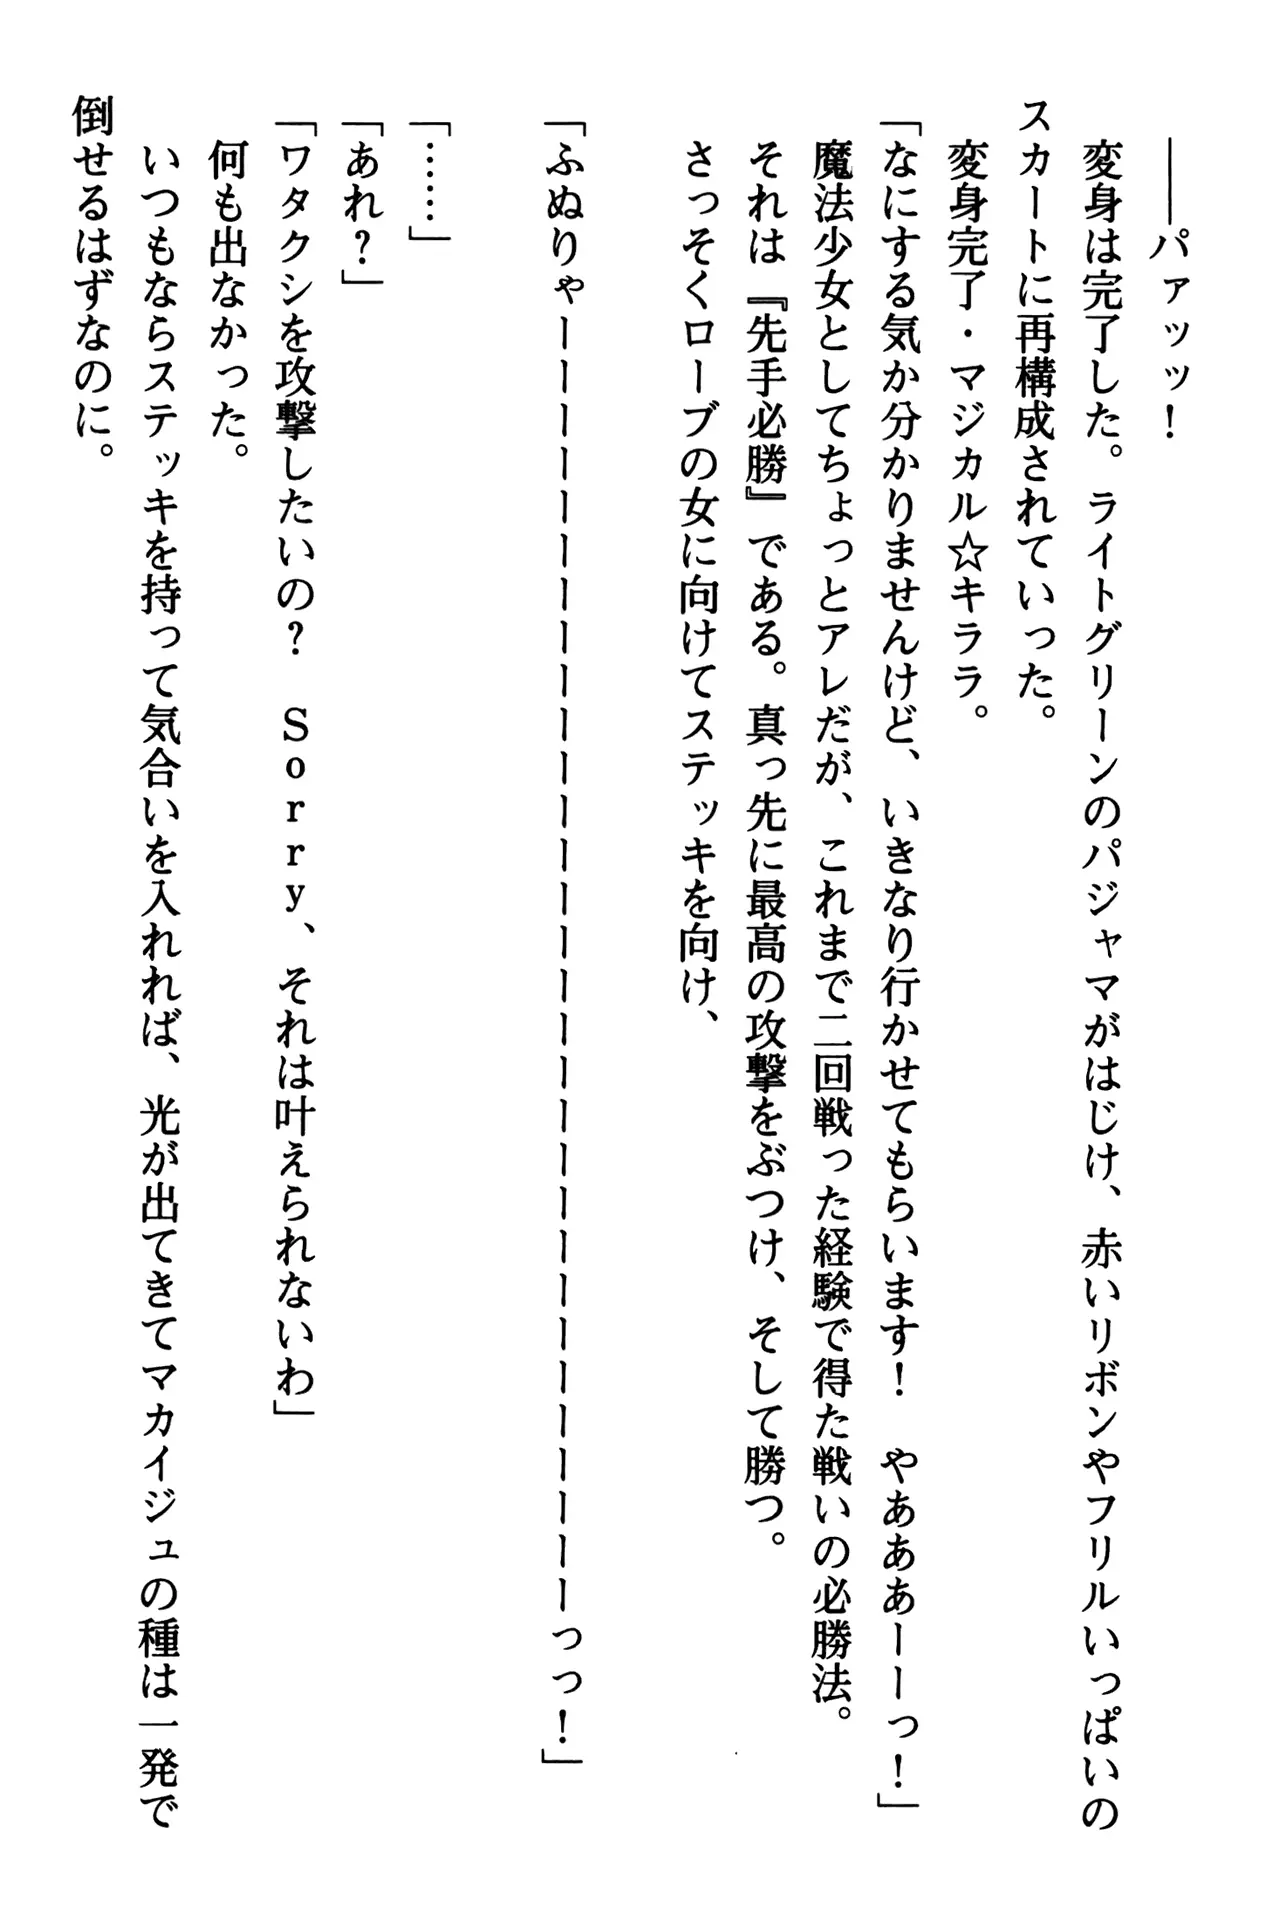 ――パァッッ！
変身は完了した。ライトグリーンのパジャマがはじけ、赤いリボンやフリルいっぱいの
スカートに再構成されていった。
変身完了・マジカル☆キララ。
「なにする気か分かりませんけど、いきなり行かせてもらいます！　やあああーーっ！」
魔法少女としてちょっとアレだが、これまで二回戦った経験で得た戦いの必勝法。
それは『先手必勝』である。真っ先に最高の攻撃をぶつけ、そして勝つ。
さっそくローブの女に向けてステッキを向け、
「ふぬりゃーーーーーーーーーーーーーーーーーーーーーーーーーーーーーーっっ！」
「……」
「あれ？」
「ワタクシを攻撃したいの？　Ｓｏｒｒｙ、それは叶えられないわ」
何も出なかった。
いつもならステッキを持って気合いを入れれば、光が出てきてマカイジュの種は一発で
倒せるはずなのに。